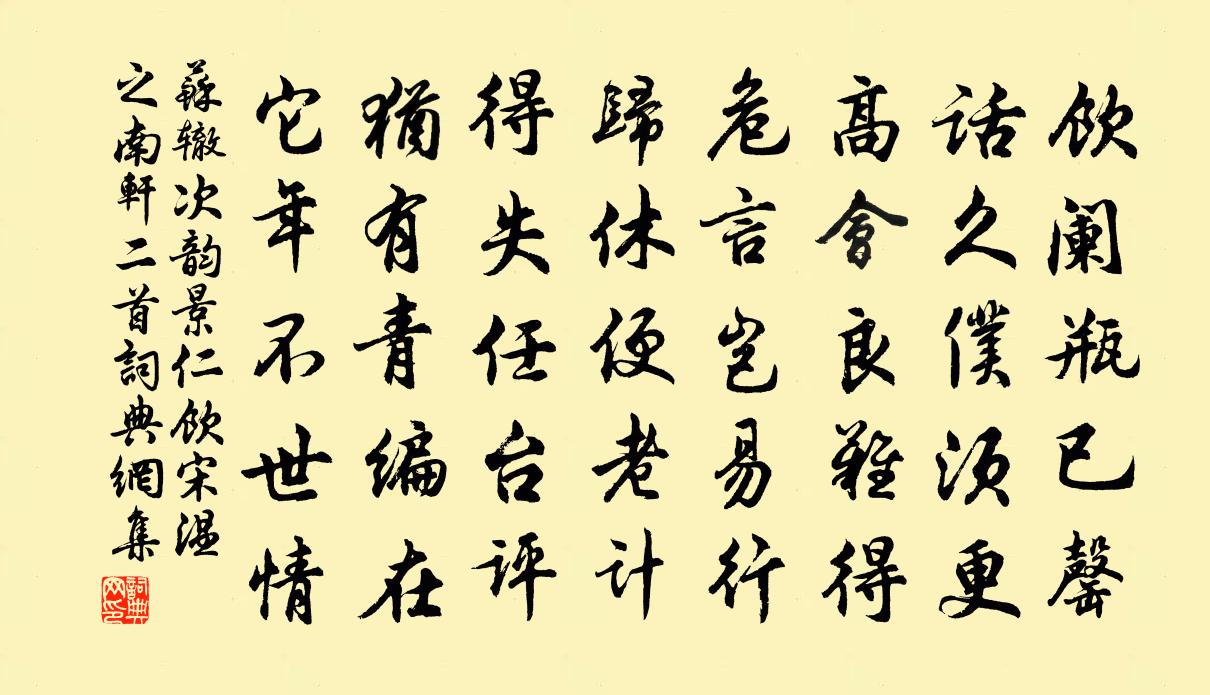 飲闌瓶已罄
話久僕須更
高會良難得
危言豈易行
歸休便老計
得失任台評
猶有青編在
它年不世情
蘇辙次韵景仁飲宋温
之南軒二首詞典網集
詞典网印